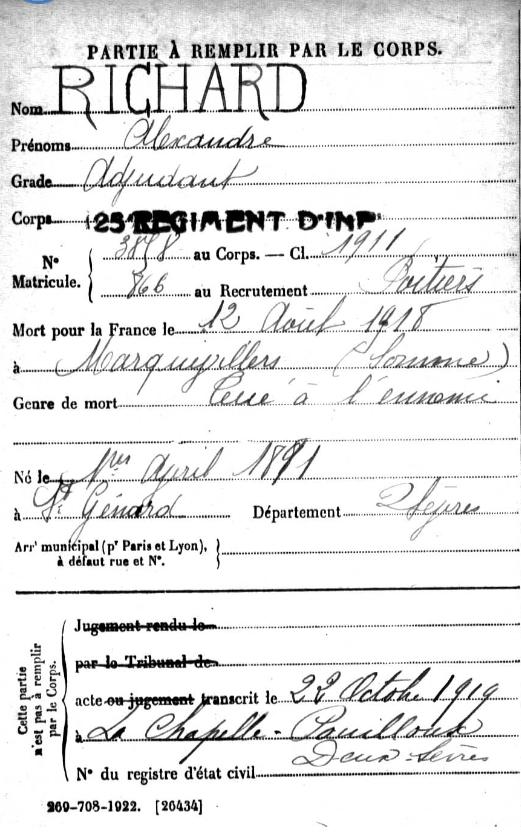 PARTIE À REMPLIR PAR LE CORPS.
Nom RICHARD
Prénoms Alexandre
Grade Adjudant
Corps 125 REGIMENT D'INF
N° Matricule. { 3878 au Corps. — Cl. 1911
866 au Recrutement Poitiers
Mort pour la France le 12 Août 1918
à Marquivillers (Somme)
Genre de mort Tué à l'ennemi
Né le 1er April 1891
à St Génard Département 2 Sèvres
Arrt municipal (pr Paris et Lyon), à défaut rue et N°. }
Cette partie n'est pas à remplir par le Corps.
Jugement rendu le
par le Tribunal de
acte ou jugement transcrit le 22 Octobre 1919
à La Chapelle-Pouilloux
Deux-Sèvres
N° du registre d'état civil
269-708-1922. [26434]